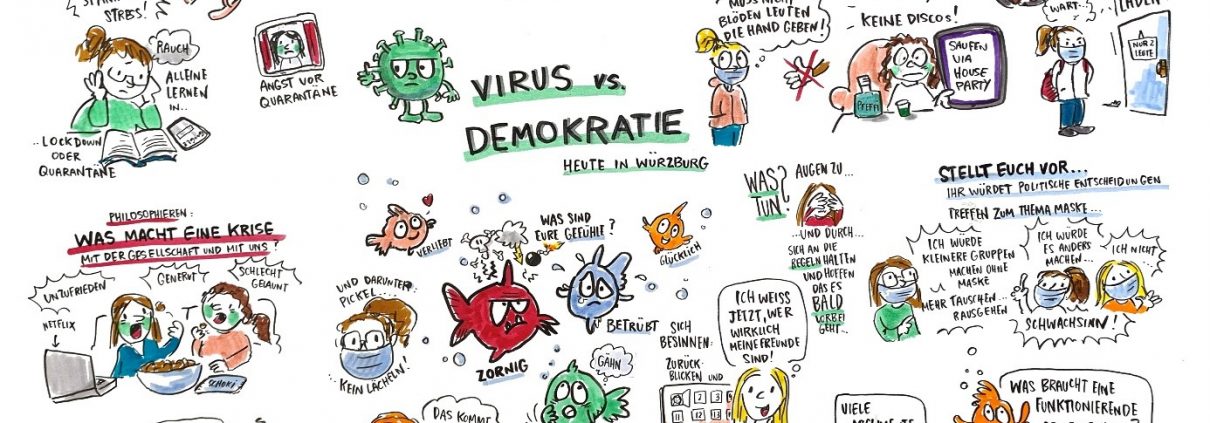 STRESS!
RAUCH
ALLEINE
LERNEN
IN...
...LOCKDOWN
ODER
QUARANTÄNE
ANGST VOR
QUARANTÄNE
VIRUS vs.
DEMOKRATIE
HEUTE IN WÜRZBURG
MUSS NICHT
BLÖDEN LEUTEN
DIE HAND GEBEN!
KEINE DISCOS!
SAUFEN
VIA
HOUSE
PARTY
WART...
LADEN
NUR 2
LEUTE
PHILOSOPHIEREN:
WAS MACHT EINE KRISE
MIT DER GESELLSCHAFT UND MIT UNS?
UNZUFRIEDEN
GENERVT
SCHLECHT
GELAUNT
NETFLIX
SCHOKI
UND DARUNTER:
PICKEL...
...KEIN LÄCHELN!
VERLIEBT
WAS SIND
EURE GEFÜHLE?
GLÜCKLICH
ZORNIG
BETRÜBT
GÄHN
WAS
TUN?
AUGEN ZU...
...UND DURCH...
SICH AN DIE
REGELN HALTEN
UND HOFFEN
DAS ES
BALD
VORBEI
GEHT...
SICH
BESINNEN:
ZURÜCK
BLICKEN UND
ICH WEISS
JETZT, WER
WIRKLICH
MEINE FREUNDE
SIND!
STELLT EUCH VOR...
IHR WÜRDET POLITISCHE ENTSCHEIDUNGEN
TREFFEN ZUM THEMA MASKE...
ICH WÜRDE
KLEINERE GRUPPEN
MACHEN OHNE
MASKE
MEHR TAUSCHEN...
RAUSGEHEN
ICH WÜRDE
ES ANDERS
MACHEN...
ICH NICHT
SCHWACHSINN!
DAS KOMMT
VIELE
WAS BRAUCHT EINE
FUNKTIONIERENDE